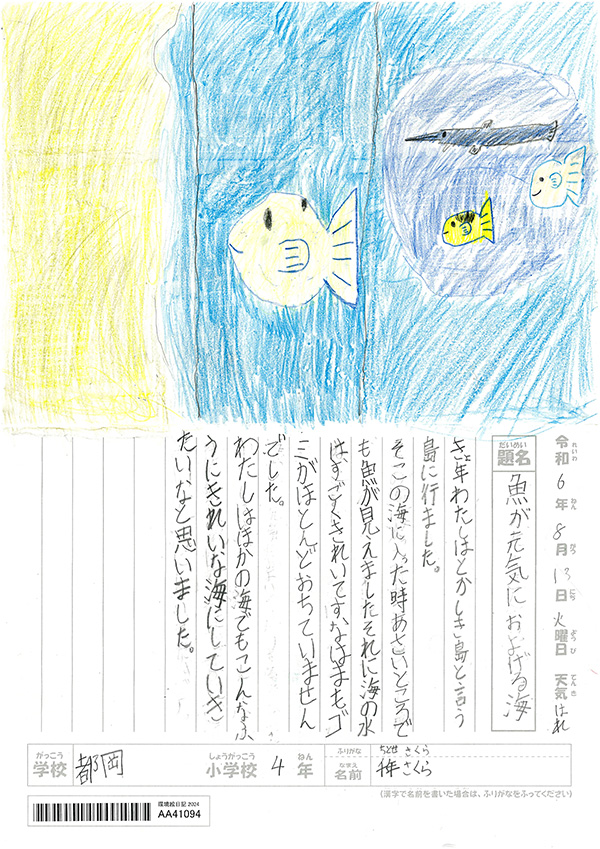 令和6年8月13日火曜日 天気はれ
れいわ ねん がつ にち ようび てんき
だいめい
題名 魚が元気におよげる海
きょ年わたしはとかしき島と言う
島に行きました。
そこの海に入った時あさいところで
も魚が見えましたそれに海の水
はすごくきれいです。なはまもゴ
ミがほとんどおちていません
でした。
わたしはほかの海でもこんなふ
うにきれいな海にしていき
たいなと思いました。
がっこう しょうがっこう ねん ふりがな ちとせ さくら
学校 都岡 小学校 4年 なまえ 名前 千年 さくら
(漢字で名前を書いた場合は、ふりがなをふってください)
環境絵日記 2024
AA41094